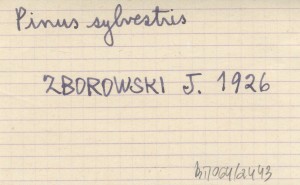 Pinus sylvestris
ZBOROWSKI J. 1926